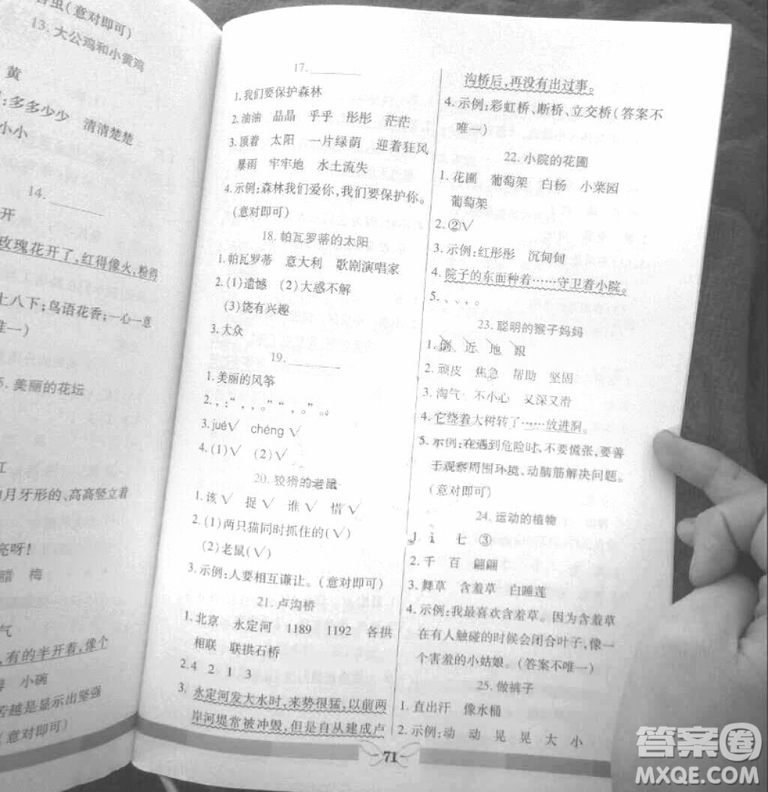 害虫(意对即可)
13. 大公鸡和小黄鸡
黄
:多多少少 清清楚楚
小小
14.
开
玫瑰花开了,红得像火,粉得
上八下;鸟语花香;一心一意
唯一)
5. 美丽的花坛
江
月牙形的、高高竖立着
亮呀!
腊 梅
气
,有的半开着,像个
得 小碗
苦越是显示出坚强
(意对即可)
17.
1. 我们要保护森林
2. 油油 晶晶 乎乎 彤彤 茫茫
3. 顶着 太阳 一片绿荫 迎着狂风
暴雨 牢牢地 水土流失
4. 示例:森林我们爱你,我们要保护你。
(意对即可)
18. 帕瓦罗蒂的太阳
1. 帕瓦罗蒂 意大利 歌剧演唱家
2. (1)遗憾 (2)大惑不解
(3)饶有兴趣
3. 大众
19.
1. 美丽的风筝
2. , : “ , 。 。” , 。 。
3. jué√ chéng √
4. (1)√ (2)√
20. 狡猾的老鼠
1. 该√ 捉√ 谁√ 惜√
2. (1)两只猫同时抓住的(√)
(2)老鼠(√)
3. 示例:人要相互谦让。(意对即可)
21. 卢沟桥
1. 北京 永定河 1189 1192 各拱
相联 联拱石桥
2. 4 2 1 3
3. 永定河发大水时,来势很猛,以前两
岸河堤常被冲毁,但是自从建成卢
沟桥后,再没有出过事。
4. 示例:彩虹桥、断桥、立交桥(答案不
唯一)
22. 小院的花圃
1. 花圃 葡萄架 白杨 小菜园
葡萄架
2. ②√
3. 示例:红彤彤 沉甸甸
4. 院子的东面种着……守卫着小院。
5. 、 、 、 。
23. 聪明的猴子妈妈
1. 倒 近 地 跟
2. 顽皮 焦急 帮助 坚固
3. 淘气 不小心 又深又滑
4. 它绕着大树转了……放进洞。
5. 示例:在遇到危险时,不要慌张,要善
于观察周围环境,动脑筋解决问题。
(意对即可)
24. 运动的植物
1. i 七 ③
2. 千 百 翩翩
3. 舞草 含羞草 白睡莲
4. 示例:我最喜欢含羞草。因为含羞草
在有人触碰的时候会闭合叶子,像一
个害羞的小姑娘。(答案不唯一)
25. 做裤子
1. 直出汗 像水桶
2. 示例:动 动 晃 晃 大 小
71
答案圈
MXQE.COM